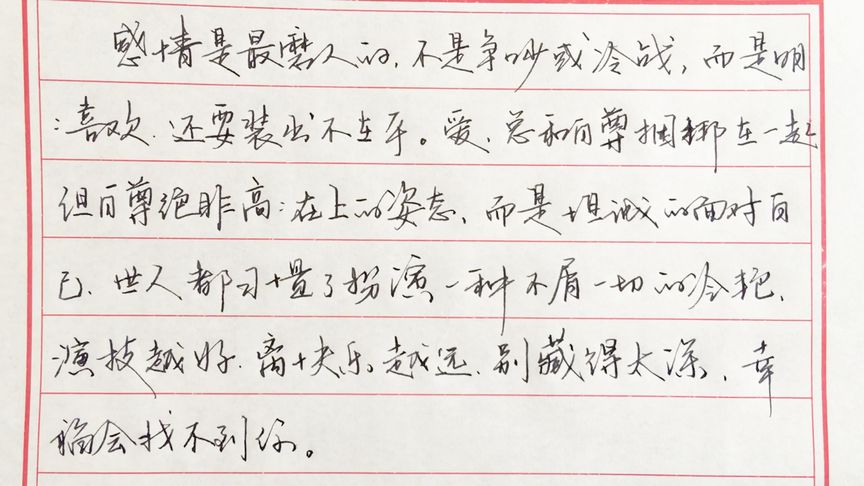 感情是最磨人的,不是争吵或冷战,而是明
:喜欢.还要装出不在乎。爱.总和自尊捆绑在一起
但自尊绝非高:在上的姿态,而是坦诚的面对自
己.世人都习惯了扮演一种不屑一切的冷艳.
演技越好.离快乐越远.别藏得太深.幸
福会找不到你。